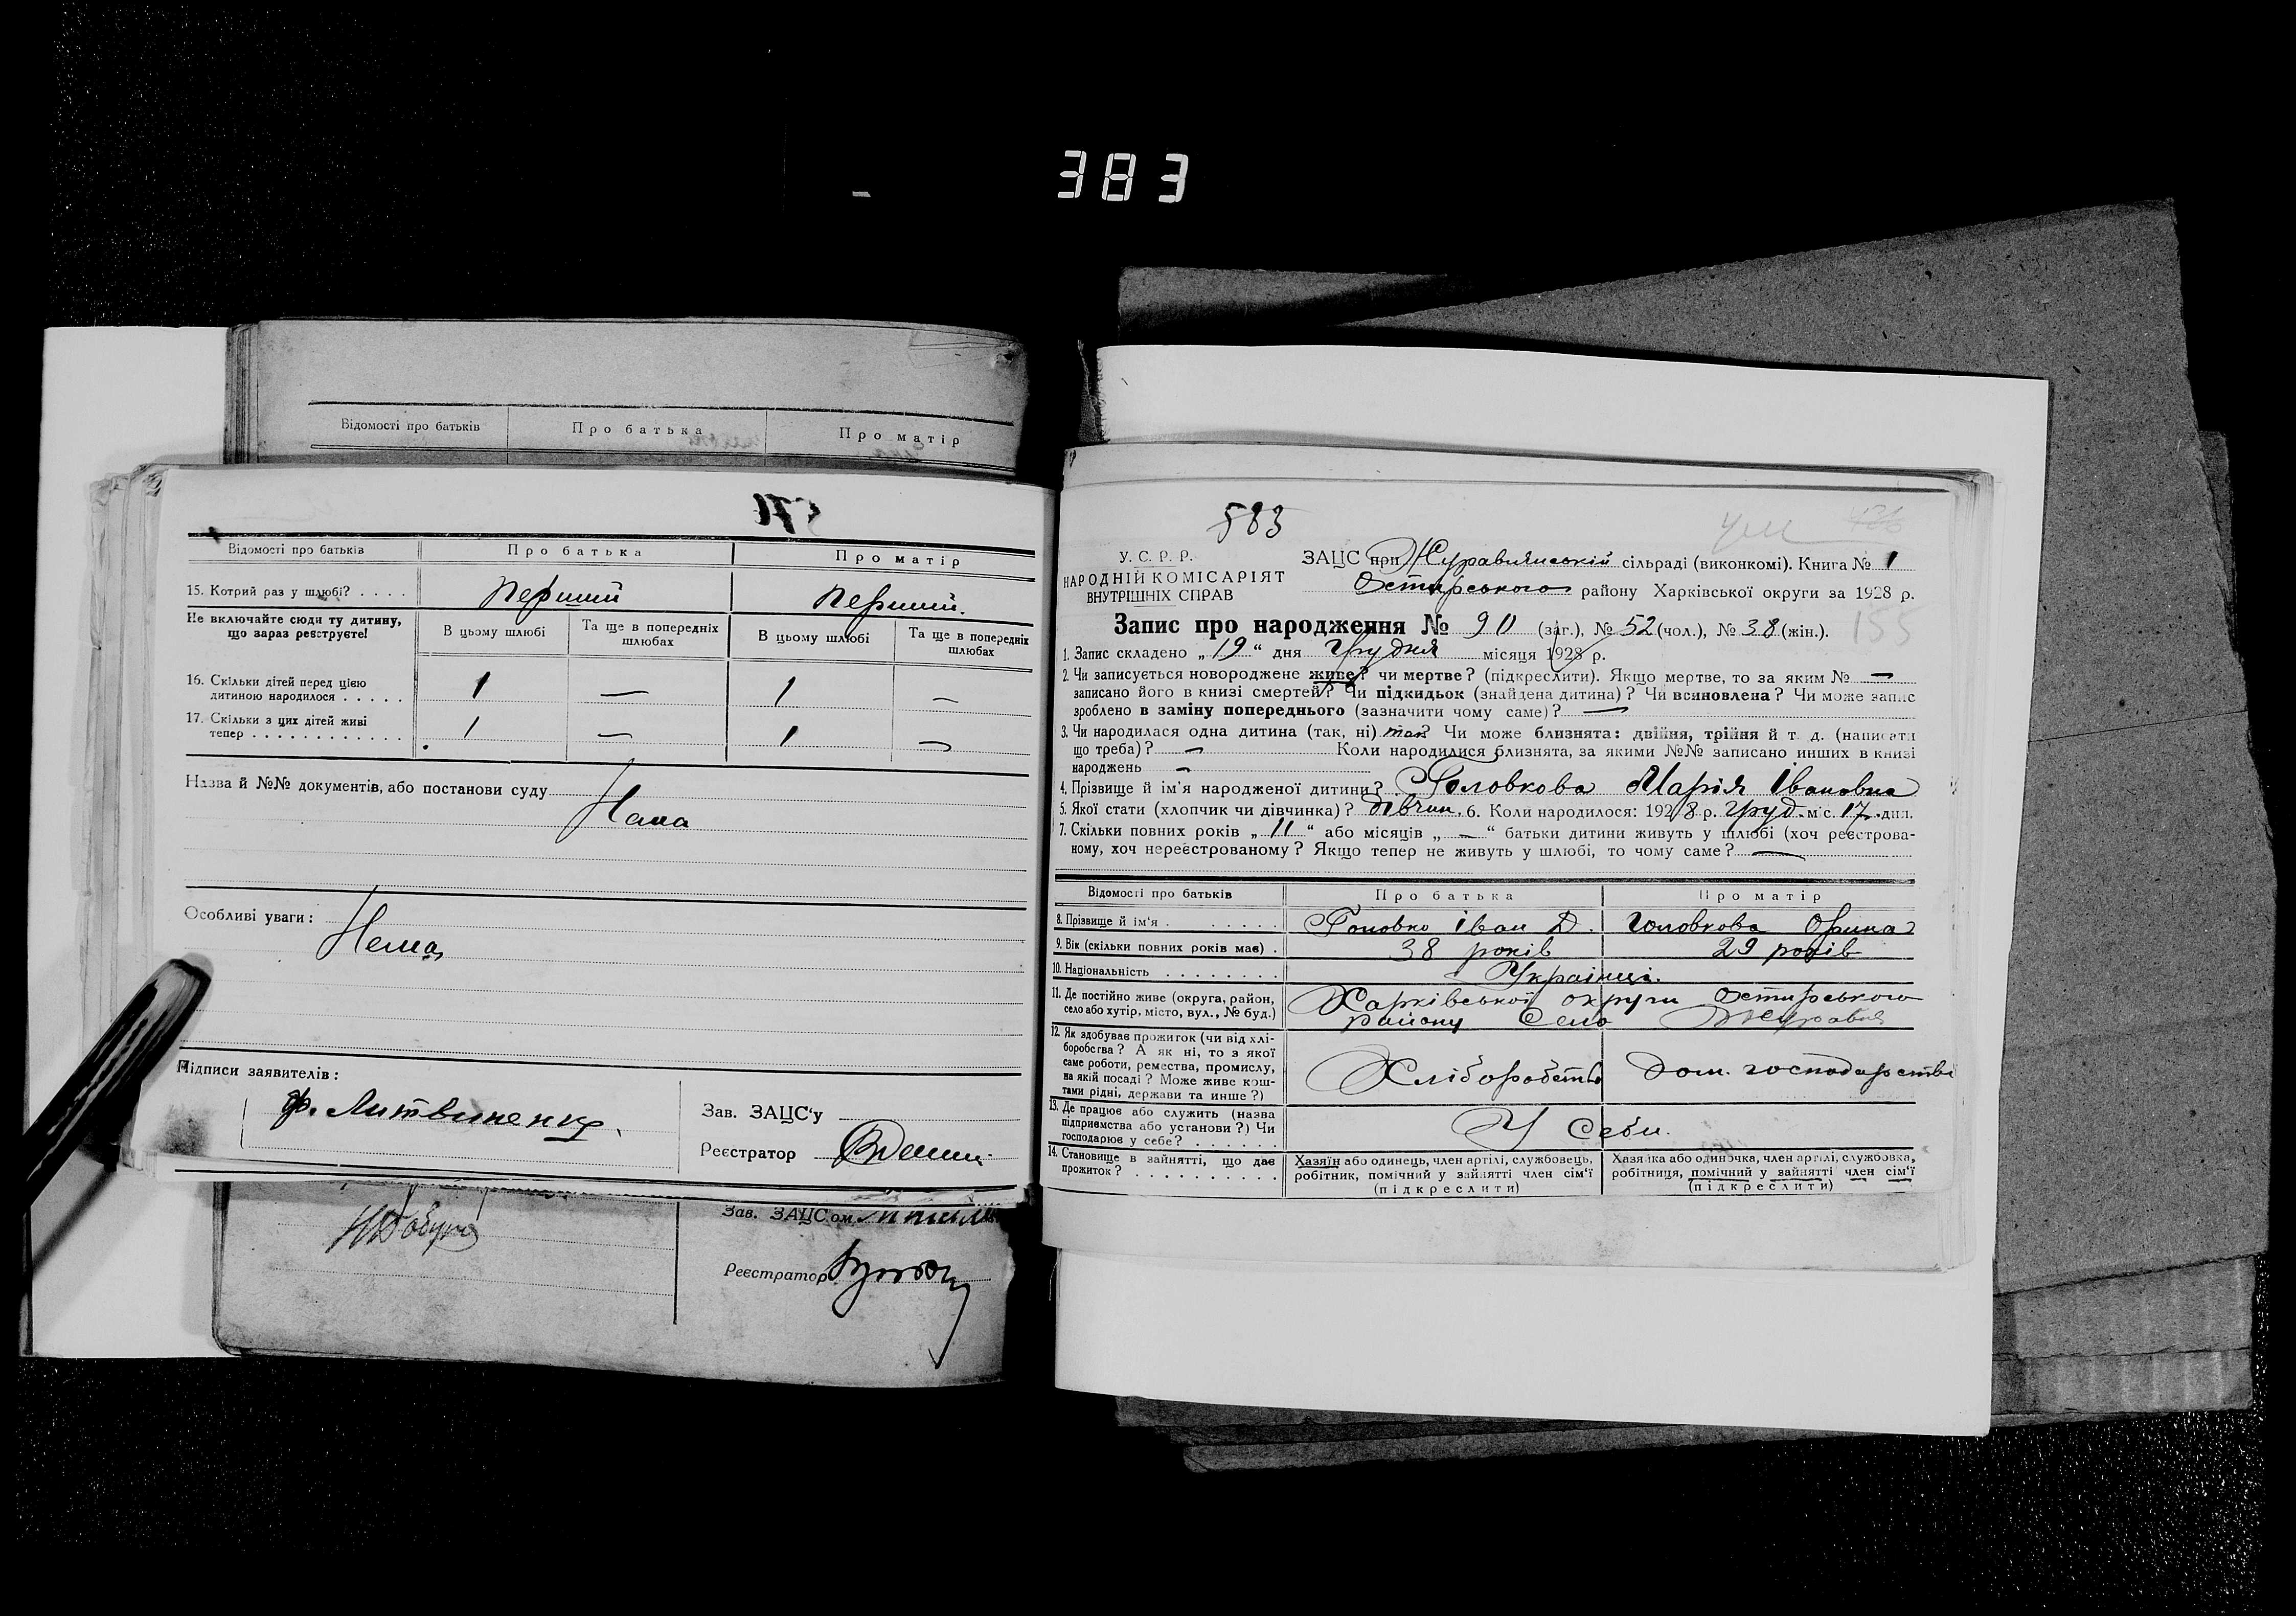 383
Відомості про батьків Про батька Про матір
571
Відомості про батьків Про батька Про матір
15. Котрий раз у шлюбі? . . . . Перший Перший.
Не включайте сюди ту дитину, що зараз реєструєте!
В цьому шлюбі Та ще в попередніх шлюбах В цьому шлюбі Та ще в попередніх шлюбах
16. Скільки дітей перед цією
дитиною народилося . . . . . 1 — 1 —
17. Скільки з цих дітей живі
тепер . . . . . . . . . . . . 1 — 1 —
Назва й №№ документів, або постанови суду
Нама
Особливі уваги:
Нема
Підписи заявителів:
Ф. Литвиненко.
Зав. ЗАЦС'у
Реєстратор
Зав. ЗАЦС.ом
Реєстратор
583
У. С. Р. Р.
НАРОДНІЙ КОМІСАРІЯТ
ВНУТРІШНІХ СПРАВ
ЗАЦС при Журавлянській сільраді (виконкомі). Книга № 1
району Харківської округи за 1928 р.
155
Запис про народження № 90 (заг.), № 52 (чол.), № 38 (жін.).
1. Запис складено „ 19 “ дня Грудня місяця 1928 р.
2. Чи записується новороджене живе? чи мертве? (підкреслити). Якщо мертве, то за яким № —
записано його в книзі смертей? Чи підкидьок (знайдена дитина)? Чи всиновлена? Чи може запис
зроблено в заміну попереднього (зазначити чому саме)? —
3. Чи народилася одна дитина (так, ні) так? Чи може близнята: двійня, трійня й т. д. (написати
що треба)? — Коли народилися близнята, за якими №№ записано инших в книзі
народжень —
4. Прізвище й ім'я народженої дитини? Головкова Марія Івановна
5. Якої стати (хлопчик чи дівчинка)? дівчин. 6. Коли народилося: 1928 р. груд. міс. 17 дня.
7. Скільки повних років „ 11 “ або місяців „ — “ батьки дитини живуть у шлюбі (хоч реєстрова-
ному, хоч нереєстрованому? Якщо тепер не живуть у шлюбі, то чому саме? —
Відомості про батьків Про батька Про матір
8. Прізвище й ім'я . . . . . . Головко Іван Д. Головкова Орина
9. Вік (скільки повних років має) . 38 років 29 років
10. Національність . . . . . . . . Українці.
11. Де постійно живе (округа, район,
село або хутір, місто, вул., № буд.)
Харківської округи
району Село Журавлі
12. Як здобуває прожиток (чи від хлі-
боробства? А як ні, то з якої
саме роботи, ремества, промислу,
на якій посаді? Може живе кош-
тами рідні, держави та инше?)
Хліборобство Дом. господарство
13. Де працює або служить (назва
підприємства або установи?) Чи
господарює у себе? . . . . . .
У Себи.
14. Становище в зайнятті, що дає
прожиток? . . . . . . . . .
Хазяїн або одинець, член артілі, службовець,
робітник, помічний у зайнятті член сім'ї
(підкреслити)
Хазяйка або одиночка, член артілі, службовка,
робітниця, помічний у зайнятті член сім'ї
(підкреслити)